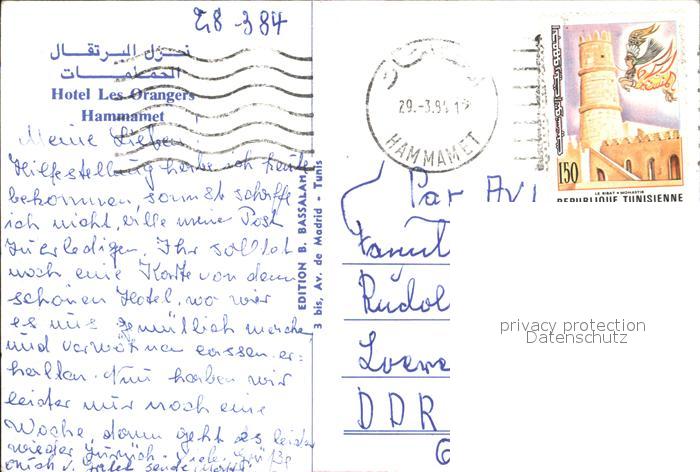 28-3 84
نزل البرتقال
الحمامات
Hotel Les Orangers
Hammamet
Meine Lieben!
Hilfestellung habe ich heute
bekommen, sonst schaffe
ich nicht, alle meine Post
zu erledigen. Ihr solltet
noch eine Karte von dem
schönen Hotel, wo wir
es uns gemütlich machen
und verwöhnen lassen, er=
halten. Nun haben wir
leider nur noch eine
Woche, dann geht es leider
wieder zurück. Viele Grüße
auch v.
EDITION B. BASSALAMA
3 bis, Av. de Madrid - Tunis
29.-3.84 19
HAMMAMET
150
LE RIBAT • MONASTIR
REPUBLIQUE TUNISIENNE
Par Avi
Famil
Rudol
DDR
privacy protection
Datenschutz